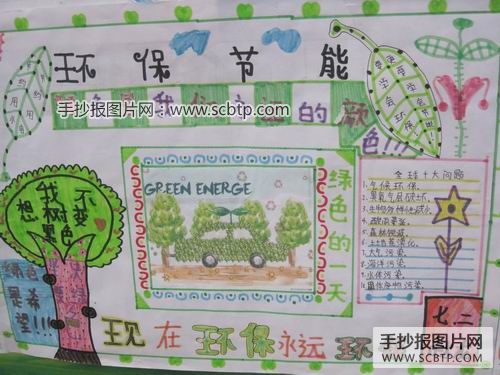 环保节能
手抄报图片网:www.scbtp.com
的颜
色!!!
GREEN ENERGE
绿色的一天
全球十大问题
1.气候环保.
2.臭氧气层破坏.
3.生物多样性减少.
4.酸雨蔓延.
5.森林锐减.
6.土地荒漠化.
7.大气污染.
8.海洋污染.
9.水体污染.
10.固体废物污染.
我不
想变
树
黑色
绿色
是希
望!!!
七二
现在环保永远环
手抄报图片网
WWW.SCBTP.COM